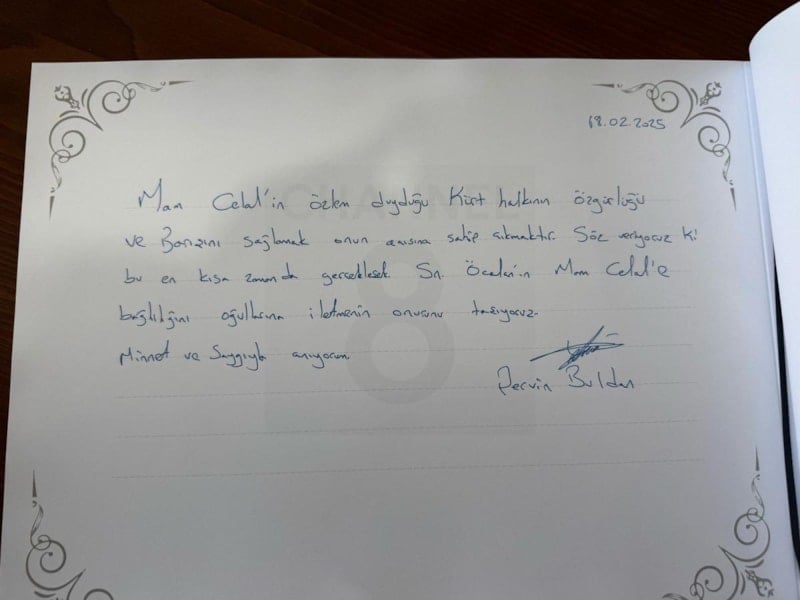 18.02.2025
Mam Celal'in özlem duyduğu Kürt halkının özgürlüğü
ve Barışını sağlamak onun anısına sahip çıkmaktır. Söz veriyoruz ki
bu en kısa zamanda gerçekleşecek. Sn. Öcalan'ın Mam Celal'e
bağlılığını oğullarına iletmenin onurunu taşıyoruz.
Minnet ve Saygıyla anıyorum
Pervin Buldan
CHANNEL
8